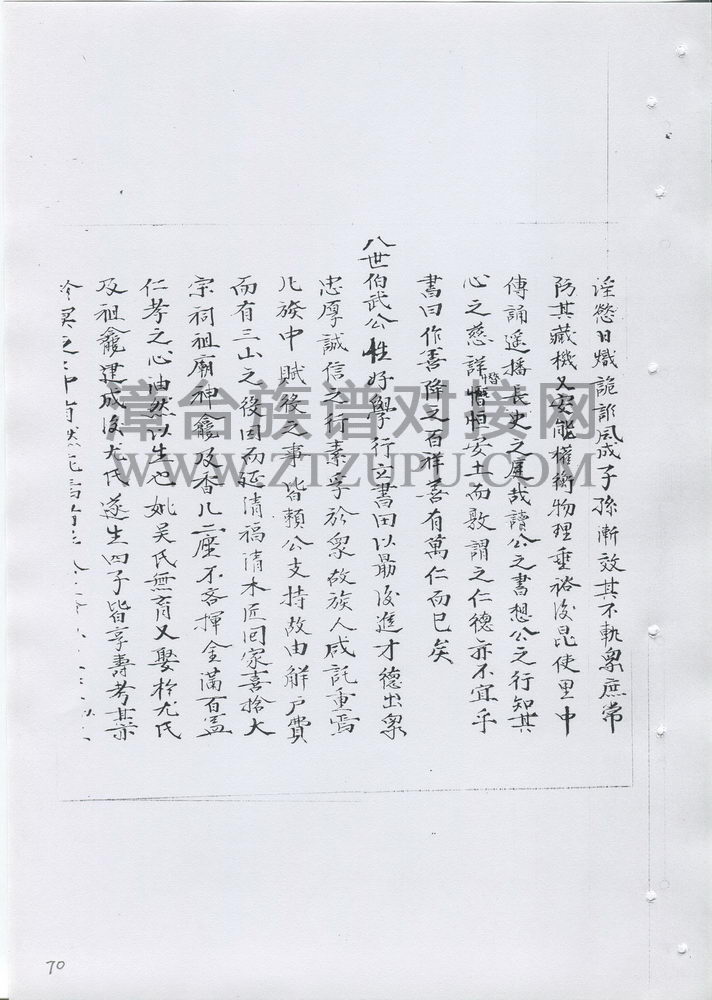 淫慾日熾詭詐風成子孫漸效其不軌眾庶常
防其藏機又安能權衡物理垂裕後昆使里中
傳誦遥播長史之庭哉讀公之書想公之行知其
心之慈詳愷恒安土而敦謂之仁德亦不宜乎
書曰作善降之百祥善有萬仁而已矣
八世伯武公性好學行立書田以勗後進才德出眾
忠厚誠信之行素孚於眾故族人咸託重焉
凡族中賦役之事皆賴公支持故由解戶費
而有三山之役因而延請福清木匠回家喜捨大
宗祠祖廟神龕及香几二座不吝揮金滿百盖
仁孝之心油然以生也妣吳氏無育又娶柃尤氏
及祖龕建成後尤氏遂生四子皆享壽考其
冥之中有然
漳台族谱对接网
WWW.ZTZUPU.COM
70